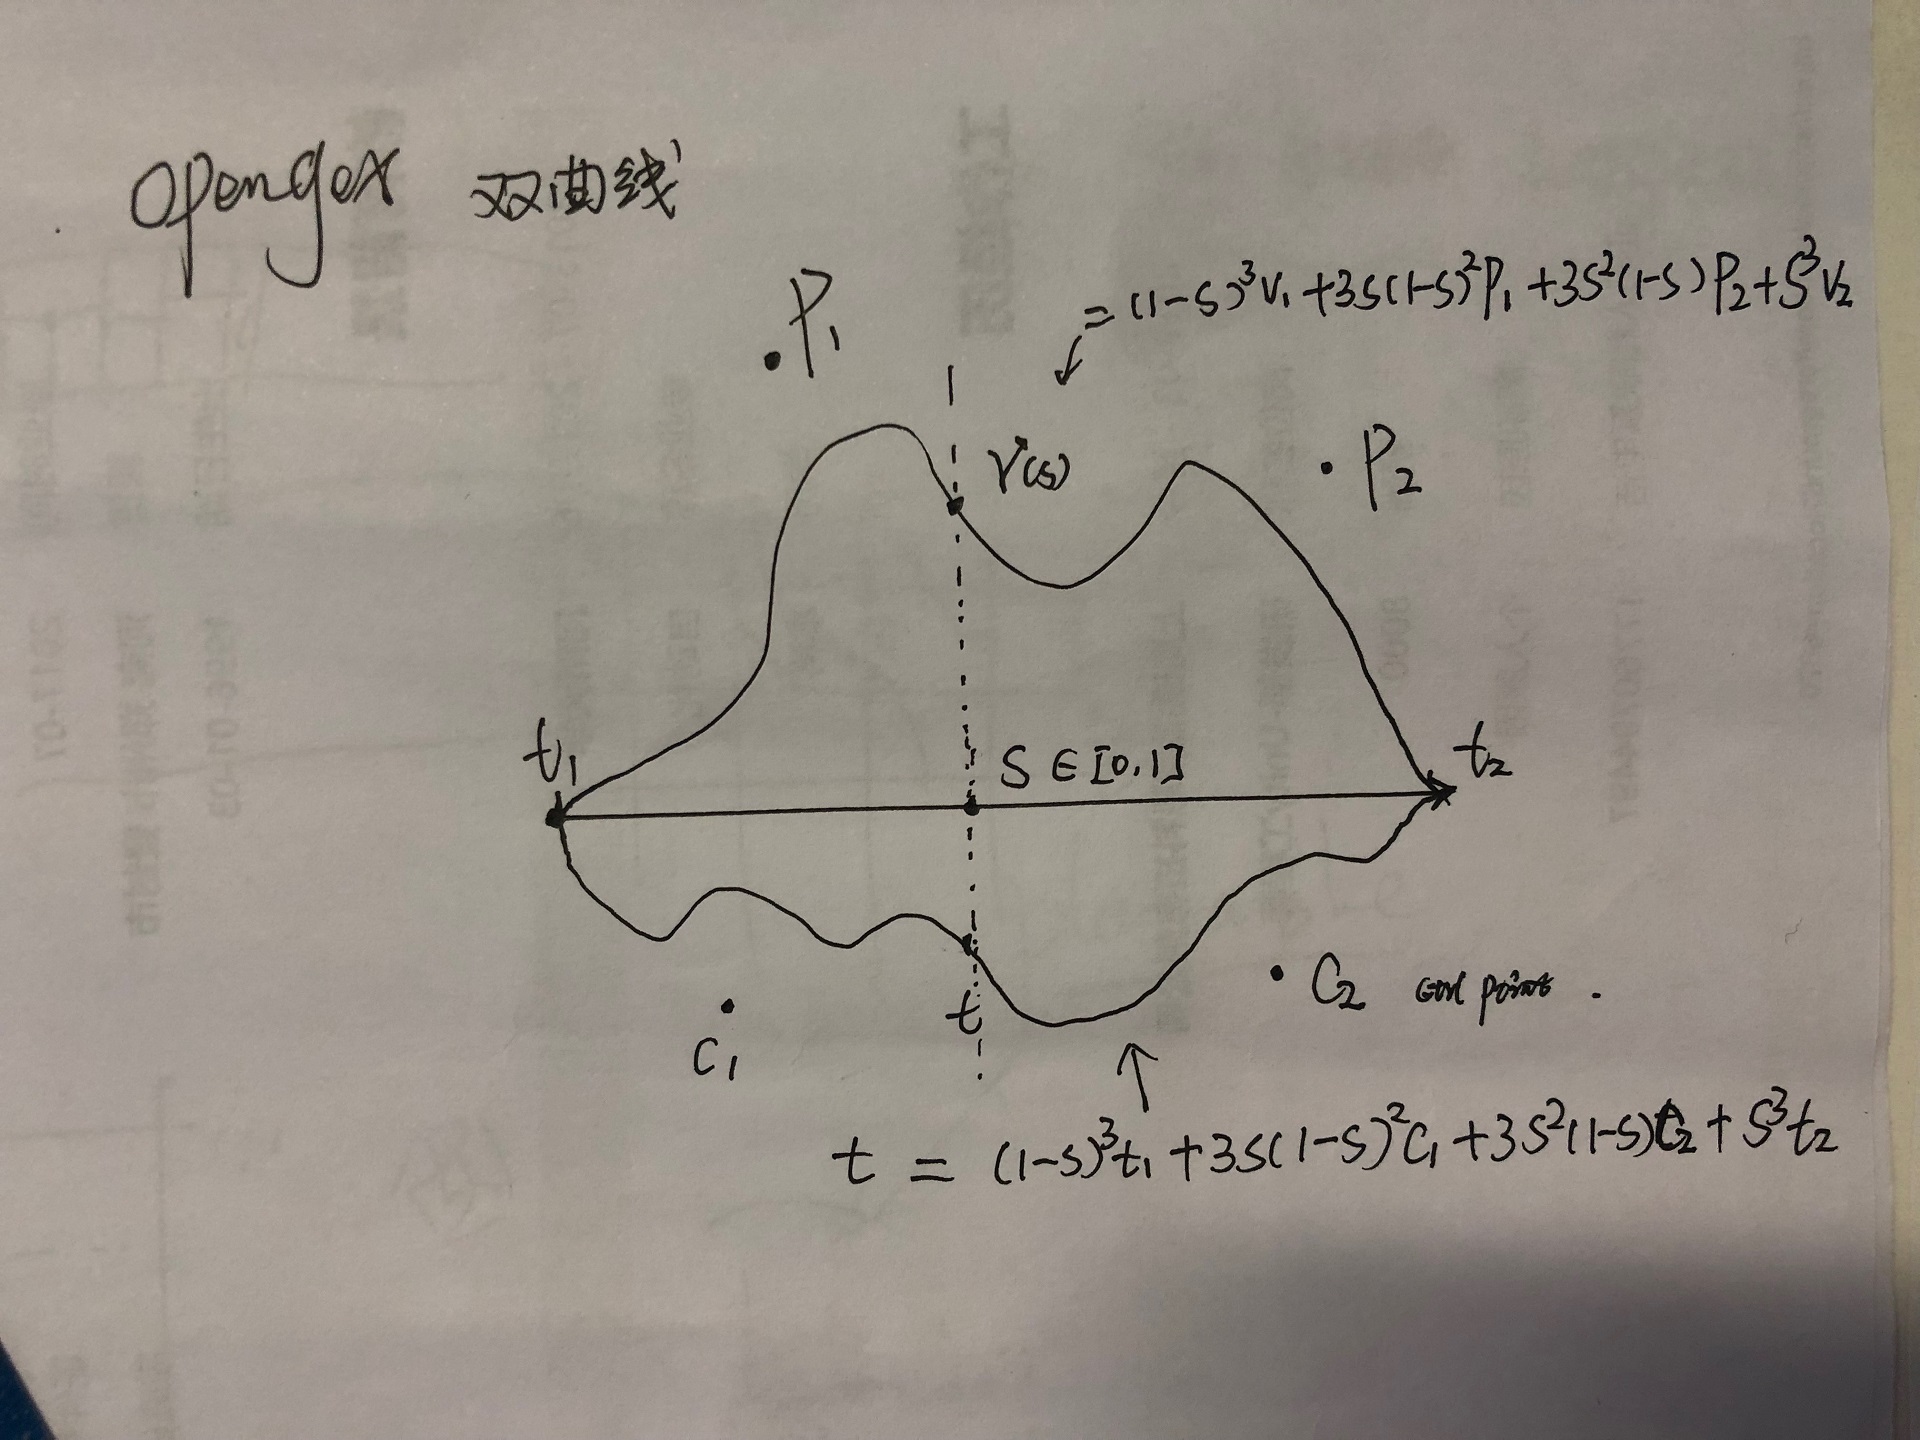 Opengex 双曲线
P₁
= (1-S)³V₁+3S(1-S)²P₁+3S²(1-S)P₂+S³V₂
V(s)
P₂
t₁
S∈[0,1]
t₂
C₂ point .
t
C₁
t = (1-S)³t₁+3S(1-S)²C₁+3S²(1-S)C₂+S³t₂